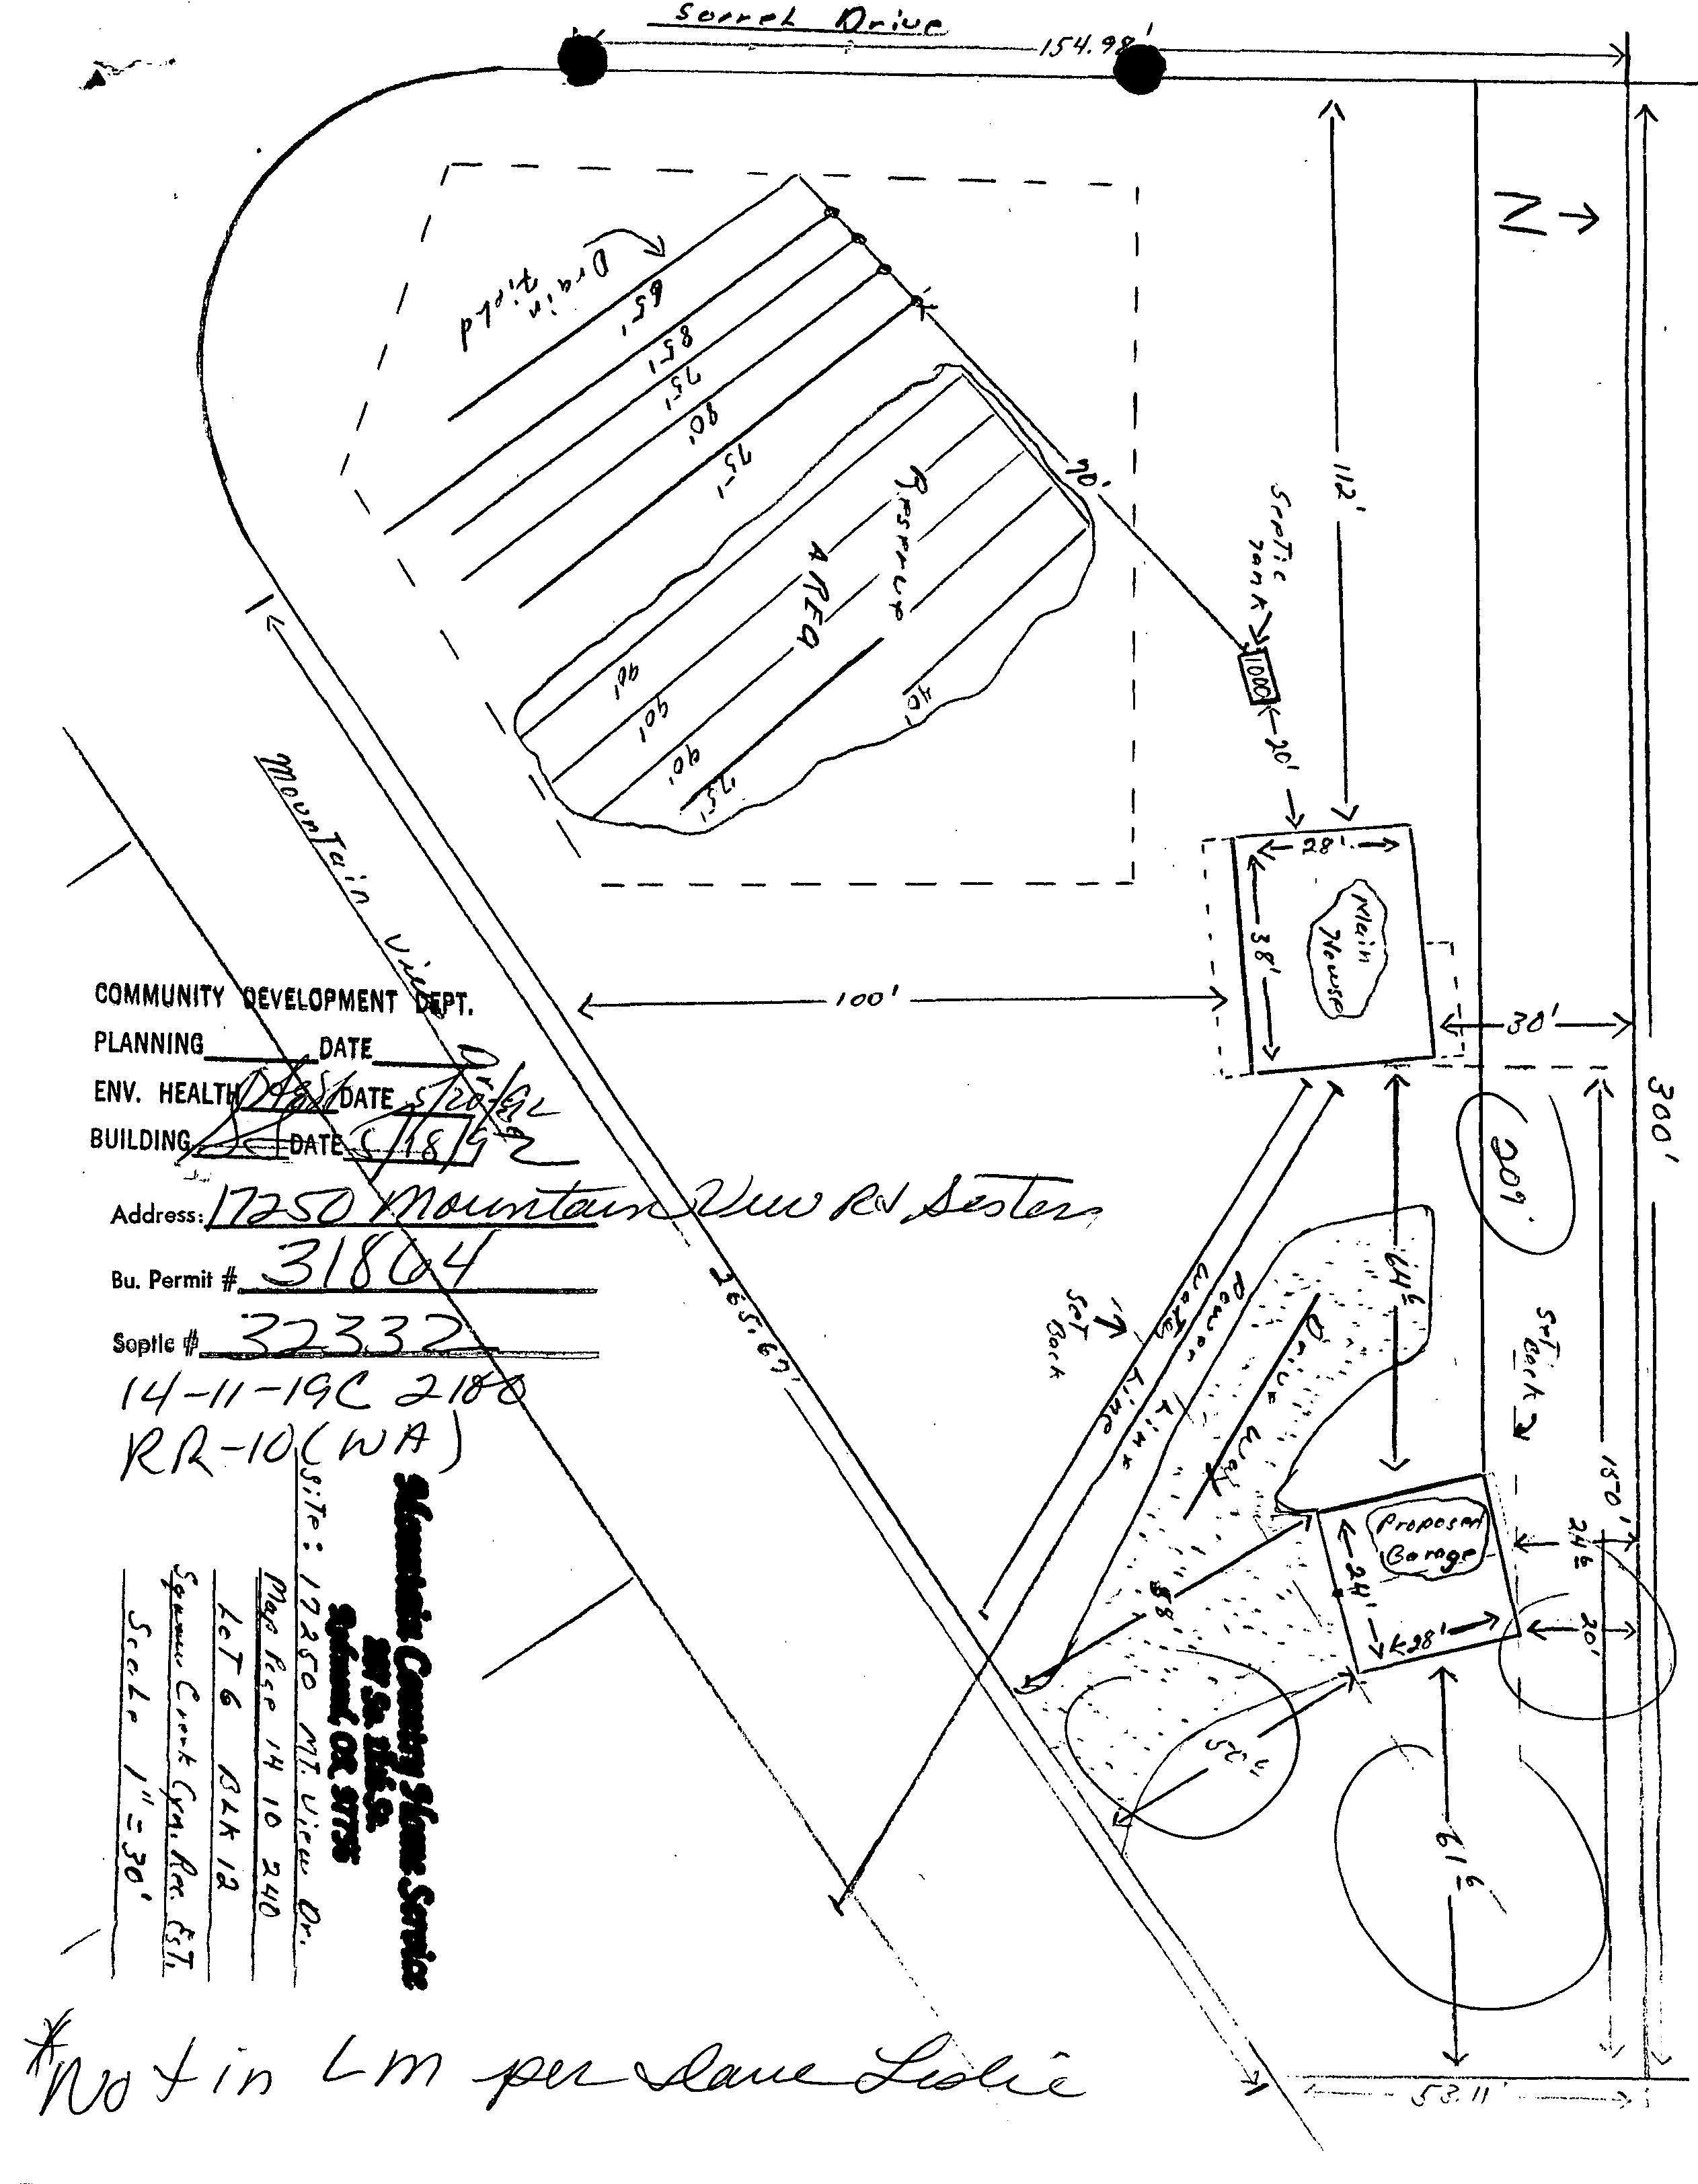 Sorrel Drive
154.98'
N
Drain
Field
65'
85'
75'
80'
75'
70'
112'
Septic
Tank
1000
20'
Reserve
AREA
90'
90'
90'
75'
40'
28'
38'
Main
House
100'
30'
300'
Mountain View Dr.
COMMUNITY DEVELOPMENT DEPT.
PLANNING DATE
ENV. HEALTH DATE 5/20/92
BUILDING DATE 5/18/92
Address: 17250 Mountain View Rd, Sisters
Bu. Permit # 31864
Septic # 32332
14-11-19C 2100
RR-10 (WA)
265.67'
Set
Back
Water Line
Power Line
Drive Way
64 6
20'
Set
Back
150'
Proposed
Garage
24'
28'
24 6
20'
58
52'
61 6
53.11'
Mountain Country Home Service
Redmond, OR 97756
Site: 17250 MT. View Dr.
Map Page 14 10 240
Lot 6 BLK 12
Squaw Creek Cyn. Rec. EsT.
Scale 1" = 30'
*Not in LM per Dave Leslie